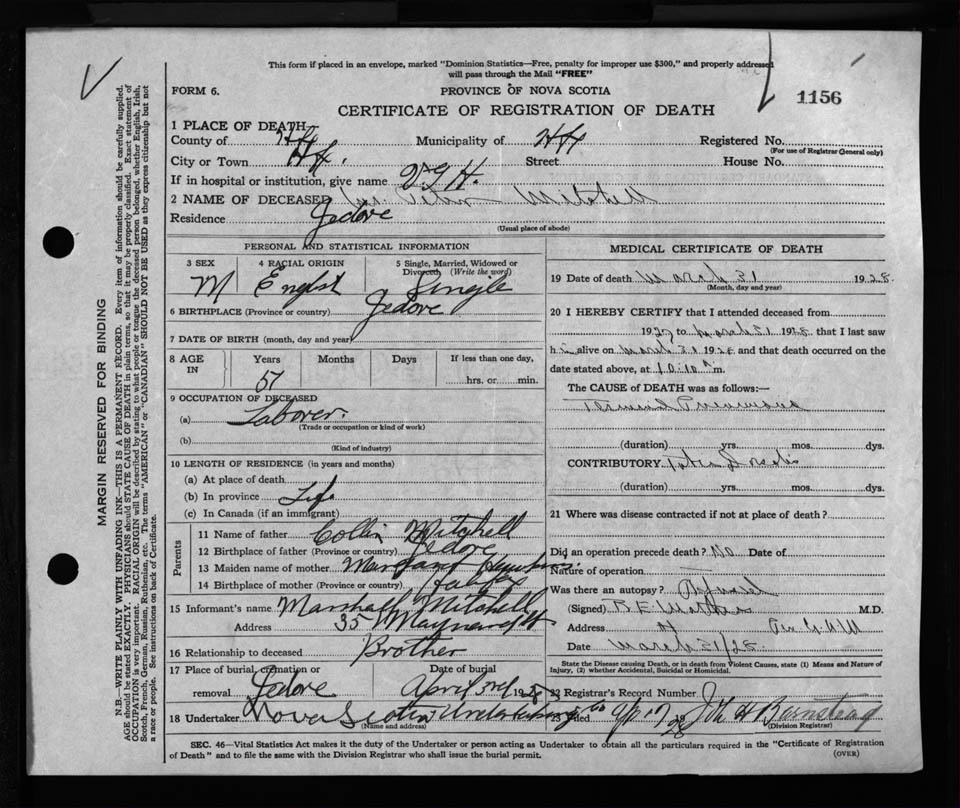 This form if placed in an envelope, marked "Dominion Statistics—Free, penalty for improper use $300," and properly addressed
will pass through the Mail "FREE"
FORM 6.
PROVINCE OF NOVA SCOTIA
1156
CERTIFICATE OF REGISTRATION OF DEATH
1 PLACE OF DEATH
County of Hfx Municipality of Hfx Registered No.
(For use of Registrar General only)
City or Town Hfx. Street House No.
If in hospital or institution, give name V.G.H.
2 NAME OF DECEASED Peter Mitchell
Residence Jedore
(Usual place of abode)
PERSONAL AND STATISTICAL INFORMATION
3 SEX 4 RACIAL ORIGIN 5 Single, Married, Widowed or
Divorced (Write the word)
M English Single
6 BIRTHPLACE (Province or country) Jedore
7 DATE OF BIRTH (month, day and year)
8 AGE IN Years Months Days If less than one day,
57 hrs. or min.
9 OCCUPATION OF DECEASED
(a) Laborer.
(Trade or occupation or kind of work)
(b)
(Kind of industry)
10 LENGTH OF RESIDENCE (in years and months)
(a) At place of death
(b) In province Life
(c) In Canada (if an immigrant)
Parents
11 Name of father Collin Mitchell
12 Birthplace of father (Province or country) Jedore
13 Maiden name of mother Margaret
14 Birthplace of mother (Province or country) Halifax
15 Informant's name Marshall Mitchell
Address 35 Maynard St
16 Relationship to deceased Brother
17 Place of burial, cremation or Date of burial
removal Jedore April 3rd 1928
18 Undertaker Nova Scotia Undertaking Co
(Name and address)
MEDICAL CERTIFICATE OF DEATH
19 Date of death March 31 1928.
(Month, day and year)
20 I HEREBY CERTIFY that I attended deceased from
1927 to March 31 1928 that I last saw
h alive on March 31 1928 and that death occurred on
date stated above, at 10:10 m.
The CAUSE of DEATH was as follows:—
Terminal Pneumonia
(duration) yrs. mos. dys.
CONTRIBUTORY Tabes Dorsalis
(duration) yrs. mos. dys.
21 Where was disease contracted if not at place of death?
Did an operation precede death? No Date of
Nature of operation —
Was there an autopsy? Refused
(Signed) M.D.
Address
Date March 31/28
State the Disease causing Death, or in death from Violent Causes, state (1) Means and Nature of
Injury, (2) whether Accidental, Suicidal or Homicidal.
22 Registrar's Record Number
23 Filed 28
(Division Registrar)
SEC. 46—Vital Statistics Act makes it the duty of the Undertaker or person acting as Undertaker to obtain all the particulars required in the "Certificate of Registration
of Death" and to file the same with the Division Registrar who shall issue the burial permit. (OVER)
MARGIN RESERVED FOR BINDING
N.B.—WRITE PLAINLY WITH UNFADING INK—THIS IS A PERMANENT RECORD. Every item of information should be carefully supplied.
AGE should be stated EXACTLY. PHYSICIANS should STATE CAUSE OF DEATH in plain terms, so that it may be properly classified. Exact statement of
OCCUPATION is very important. RACIAL ORIGIN will be described by stating to what people or tongue the deceased person belonged, whether English, Irish,
Scotch, French, German, Russian, Ruthenian, etc. The terms "AMERICAN" or "CANADIAN" SHOULD NOT BE USED as they express citizenship but not
a race or people. See instructions on back of Certificate.